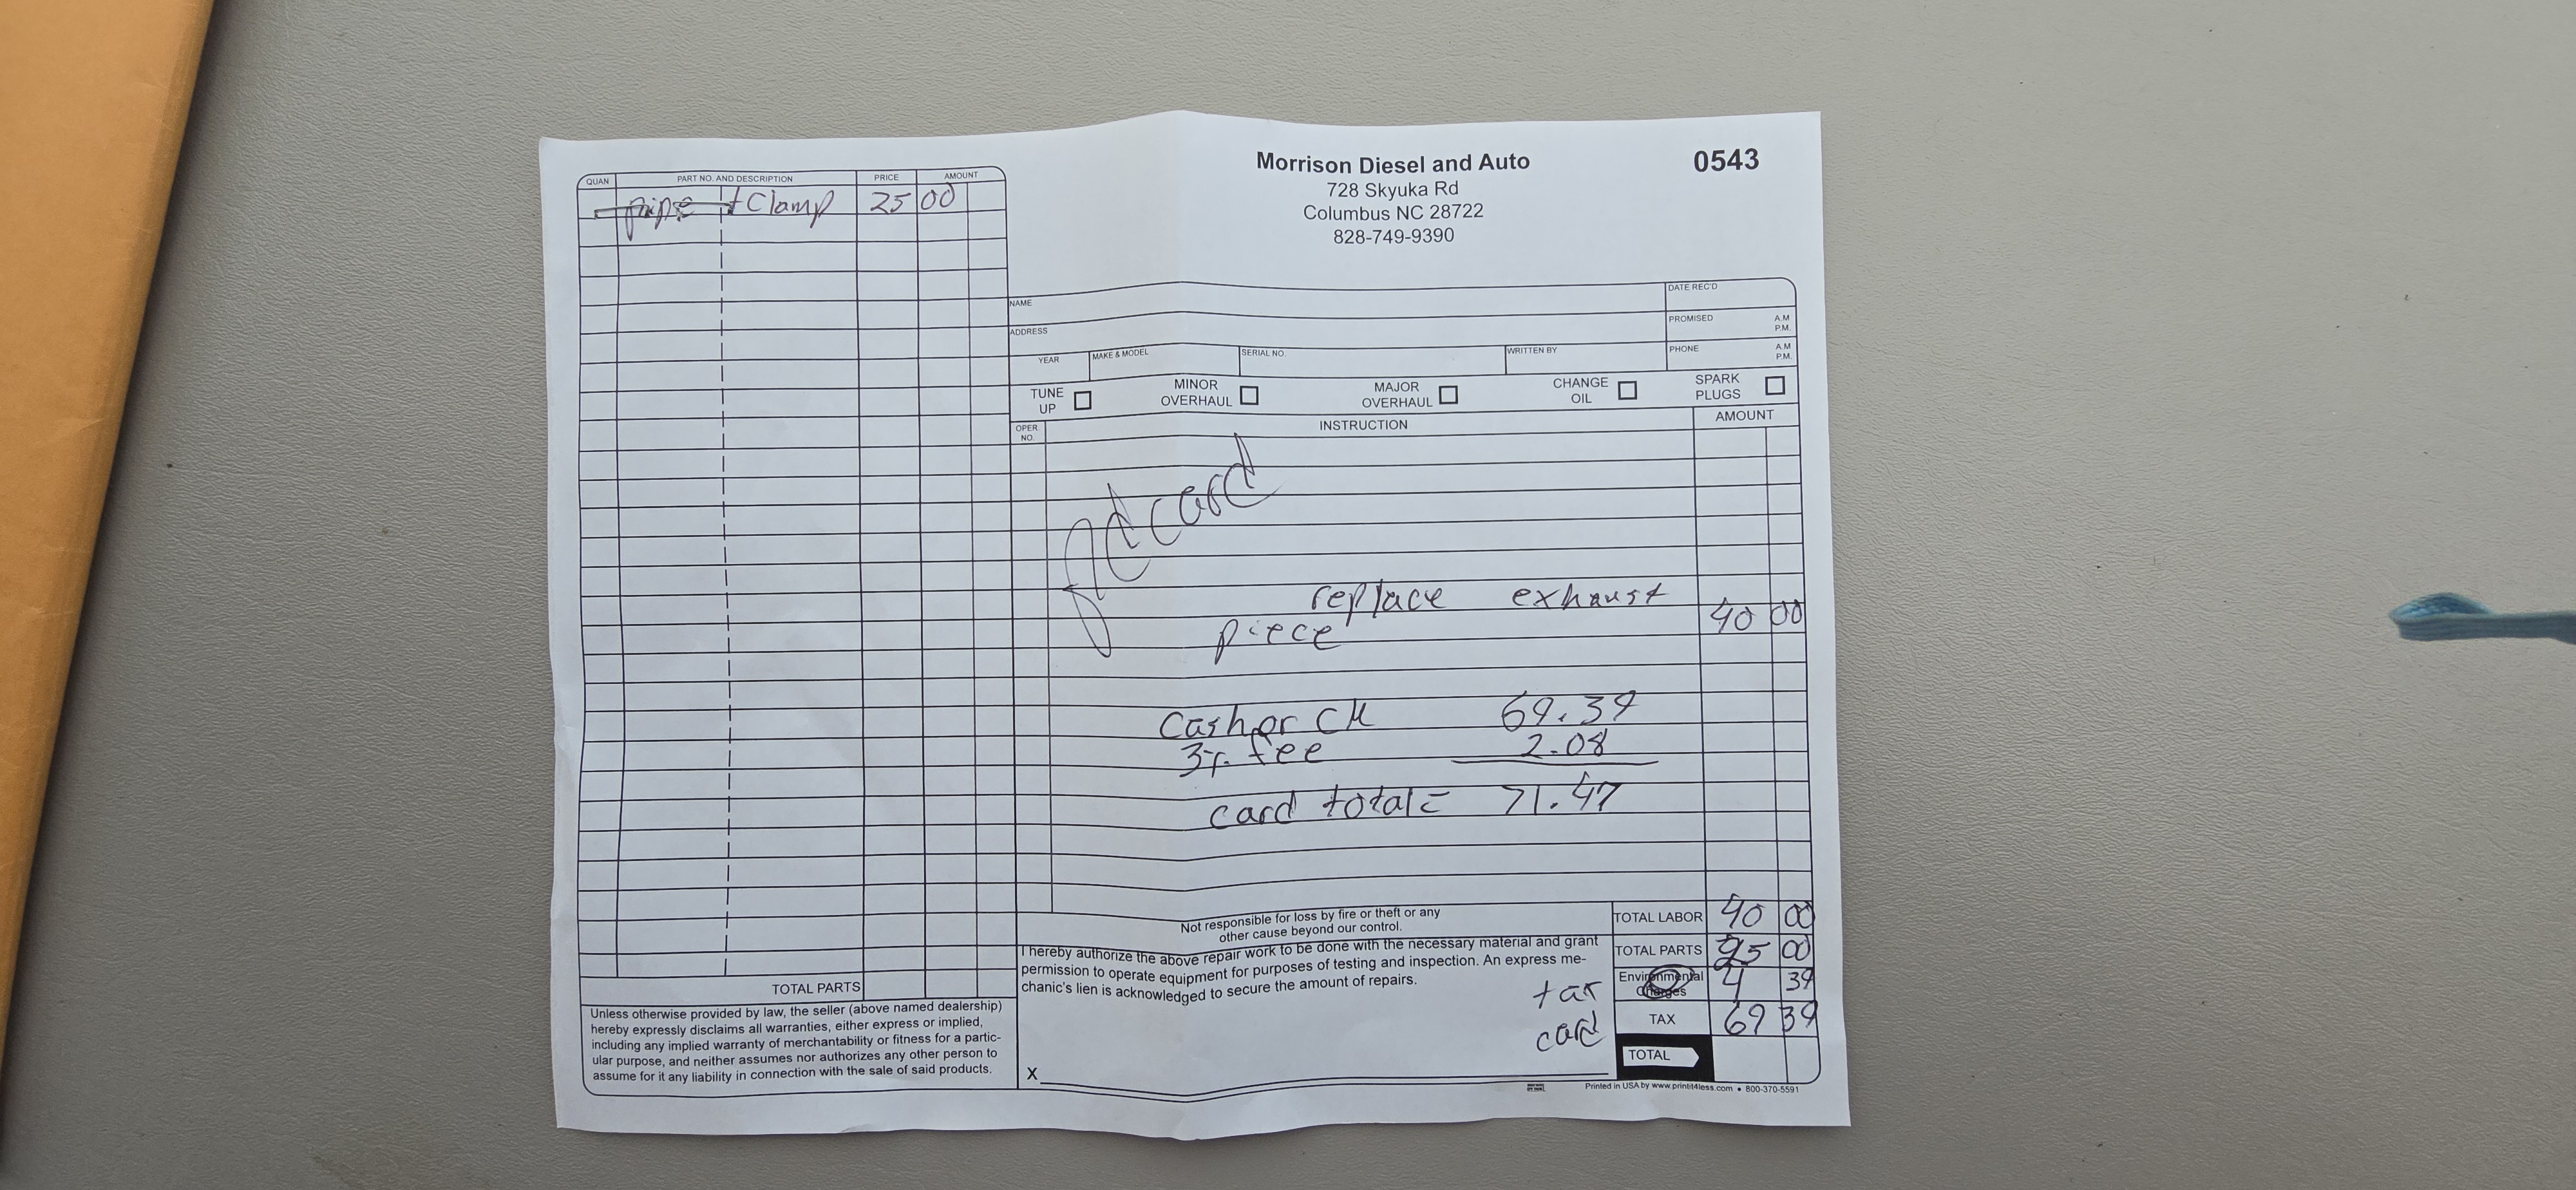 Morrison Diesel and Auto
0543
728 Skyuka Rd
Columbus NC 28722
828-749-9390
QUAN PART NO. AND DESCRIPTION PRICE AMOUNT
pipe + Clamp 25 00
NAME
DATE REC'D
ADDRESS
PROMISED A.M P.M.
YEAR MAKE & MODEL SERIAL NO. WRITTEN BY PHONE A.M P.M.
TUNE UP MINOR OVERHAUL MAJOR OVERHAUL CHANGE OIL SPARK PLUGS
OPER NO. INSTRUCTION AMOUNT
card
replace exhaust
piece 40 00
Cash or CK 69.39
3% fee 2.08
card total = 71.47
Not responsible for loss by fire or theft or any
other cause beyond our control.
I hereby authorize the above repair work to be done with the necessary material and grant
permission to operate equipment for purposes of testing and inspection. An express me-
chanic's lien is acknowledged to secure the amount of repairs.
TOTAL LABOR 40 00
TOTAL PARTS 25 00
tax Environmental Charges 4 39
card TAX 69 39
TOTAL
X
TOTAL PARTS
Unless otherwise provided by law, the seller (above named dealership)
hereby expressly disclaims all warranties, either express or implied,
including any implied warranty of merchantability or fitness for a partic-
ular purpose, and neither assumes nor authorizes any other person to
assume for it any liability in connection with the sale of said products.
Printed in USA by www.printit4less.com • 800-370-5591